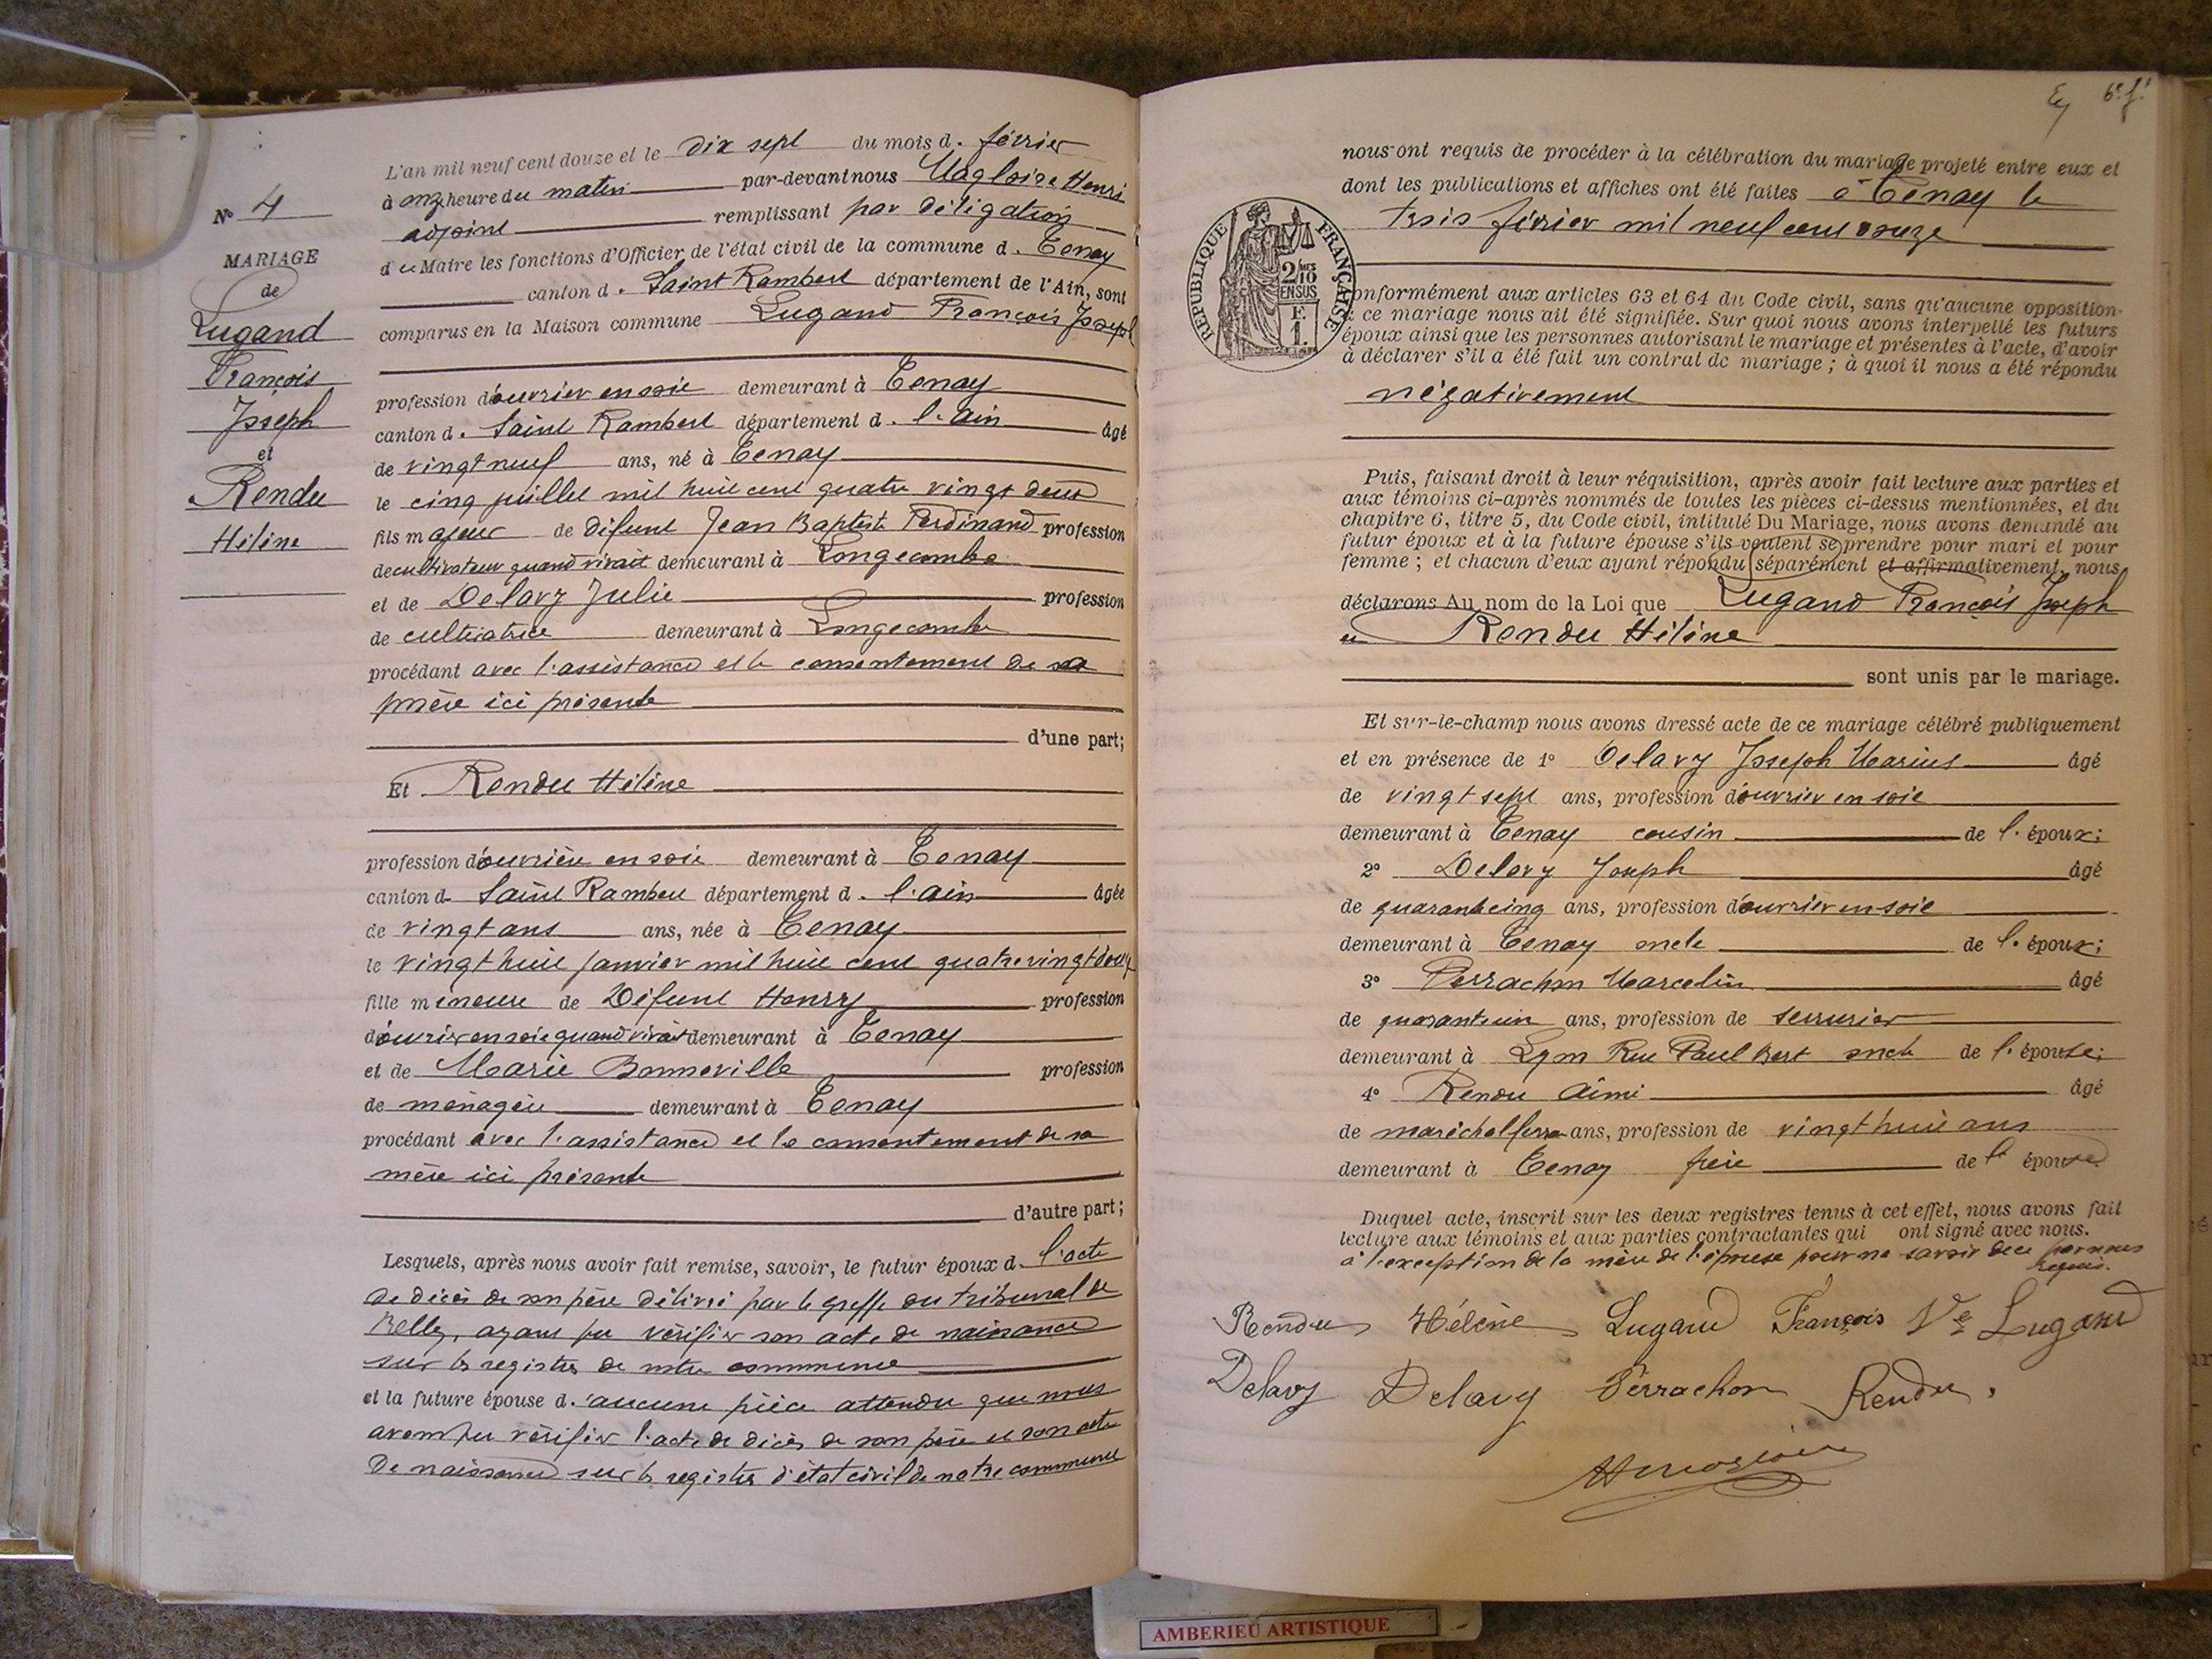 L'an mil neuf cent douze et le dix sept du mois d. février
à onze heure du matin par-devant nous Magloire Henri
N° 4
adjoint remplissant par déligation
MARIAGE
du Maire les fonctions d'Officier de l'état civil de la commune d. Tenay
de
canton d. Saint Rambert département de l'Ain, sont
Lugand
comparus en la Maison commune Lugand François Joseph
François
profession d'ouvrier en soie demeurant à Tenay
Joseph
canton d. Saint Rambert département d. l'Ain âgé
et
de vingt neuf ans, né à Tenay
Rendu
le cinq juillet mil huit cent quatre vingt deux
Hélène
fils majeur de défunt Jean Baptiste Ferdinand profession
de cultivateur quand vivait demeurant à Longecombe
et de Delavy Julie profession
de cultivatrice demeurant à Longecombe
procédant avec l'assistance et le consentement de sa
mère ici présente
d'une part;
Et Rendu Hélène
profession d'ouvrière en soie demeurant à Tenay
canton d Saint Rambert département d. l'Ain âgée
de vingt ans ans, née à Tenay
le vingt huit janvier mil huit cent quatre vingt douze
fille mineure de Défunt Henry profession
d'ouvrier en soie quand vivait demeurant à Tenay
et de Marie Bonneville profession
de ménagère demeurant à Tenay
procédant avec l'assistance et le consentement de sa
mère ici présente
d'autre part;
Lesquels, après nous avoir fait remise, savoir, le futur époux d. l'acte
de décès de son père délivré par le greffe du tribunal de
Belley, ayant pu vérifier son acte de naissance
sur les registres de notre commune
et la future épouse d. aucune pièce attendu que nous
avons pu vérifier l'acte de décès de son père et son acte
de naissance sur les registres d'état civil de notre commune
6e f.
nous ont requis de procéder à la célébration du mariage projeté entre eux et
dont les publications et affiches ont été faites à Tenay le
trois février mil neuf cent douze
RÉPUBLIQUE FRANÇAISE
2/10
EN SUS
F.
1.
conformément aux articles 63 et 64 du Code civil, sans qu'aucune opposition
à ce mariage nous ait été signifiée. Sur quoi nous avons interpellé les futurs
époux ainsi que les personnes autorisant le mariage et présentes à l'acte, d'avoir
à déclarer s'il a été fait un contrat de mariage ; à quoi il nous a été répondu
négativement
Puis, faisant droit à leur réquisition, après avoir fait lecture aux parties et
aux témoins ci-après nommés de toutes les pièces ci-dessus mentionnées, et du
chapitre 6, titre 5, du Code civil, intitulé Du Mariage, nous avons demandé au
futur époux et à la future épouse s'ils veulent se prendre pour mari et pour
femme ; et chacun d'eux ayant répondu séparément et affirmativement, nous
déclarons Au nom de la Loi que Lugand François Joseph
et Rendu Hélène
sont unis par le mariage.
Et sur-le-champ nous avons dressé acte de ce mariage célébré publiquement
et en présence de 1° Delavy Joseph Marius âgé
de vingt sept ans, profession d'ouvrier en soie
demeurant à Tenay cousin de l. époux;
2° Delavy Joseph âgé
de quarante cinq ans, profession d'ouvrier en soie
demeurant à Tenay oncle de l. époux;
3° Perrachon Marcelin âgé
de quarante un ans, profession de serrurier
demeurant à Lyon Rue Paul Bert oncle de l. épouse;
4° Rendu Aimé âgé
de maréchal ferra ans, profession de vingt huit ans
demeurant à Tenay frère de l' épouse
Duquel acte, inscrit sur les deux registres tenus à cet effet, nous avons fait
lecture aux témoins et aux parties contractantes qui ont signé avec nous.
à l'exception de la mère de l'épouse pour ne savoir de ce par nous
requis.
Rendu Hélène Lugand François Ve Lugand
Delavy Delavy Perrachon Rendu
AMBERIEU ARTISTIQUE